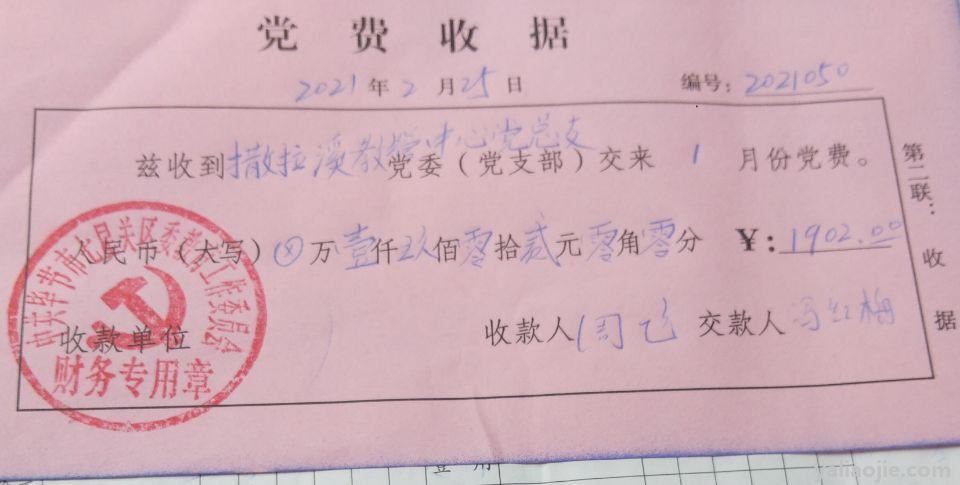 党费收据
2021年2月25日 编号:2021050
兹收到撒拉溪教管中心党总支党委(党支部)交来1月份党费。
人民币(大写)⊗万壹仟玖佰零拾贰元零角零分 ¥:1902.00
收款单位 收款人周飞 交款人冯红梅
第二联:收据
中共毕节市七星关区委教育工作委员会
财务专用章
yaliaojie.com